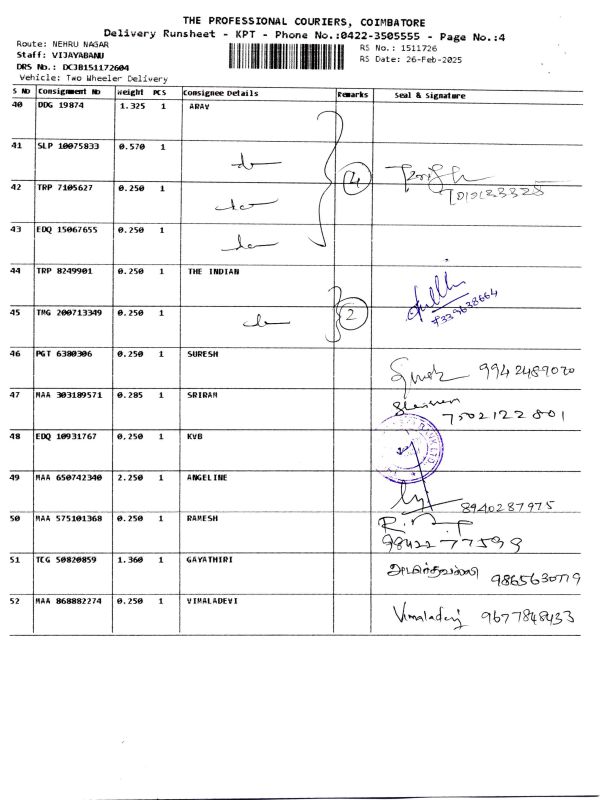 THE PROFESSIONAL COURIERS, COIMBATORE
Delivery Runsheet - KPT - Phone No.:0422-3505555 - Page No.:4
Route: NEHRU NAGAR
RS No.: 1511726
Staff: VIJAYABANU
RS Date: 26-Feb-2025
DRS No.: DCJB151172604
Vehicle: Two Wheeler Delivery
S No Consignment No Weight PCS Consignee Details Remarks Seal & Signature
40 DDG 19874 1.325 1 ARAV
41 SLP 10075833 0.570 1
4
42 TRP 7105627 0.250 1
43 EDQ 15067655 0.250 1
44 TRP 8249901 0.250 1 THE INDIAN
45 TMG 200713349 0.250 1 2
46 PGT 6380306 0.250 1 SURESH
9942489020
47 MAA 303189571 0.285 1 SRIRAM
7502122801
48 EDQ 10931767 0.250 1 KVB
49 MAA 650742340 2.250 1 ANGELINE
8940287975
50 MAA 575101368 0.250 1 RAMESH
9842277599
51 TCG 50820859 1.360 1 GAYATHIRI
52 MAA 868882274 0.250 1 VIMALADEVI
Vimaladevi 9677848433